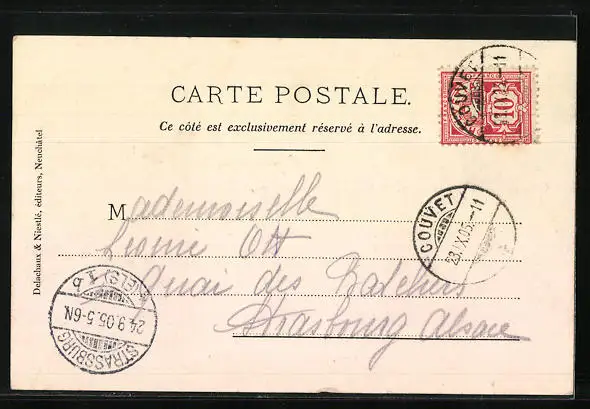 CARTE POSTALE.
Ce côté est exclusivement réservé à l'adresse.
Delachaux & Niestlé, éditeurs, Neuchâtel
10
COUVET
11
COUVET
23.IX.05.-11
Mademoiselle
Leonie Ott
Quai des Bateliers
Strasbourg Alsace
STRASSBURG
24.9.05.5-6N.
(ELS) 1 b